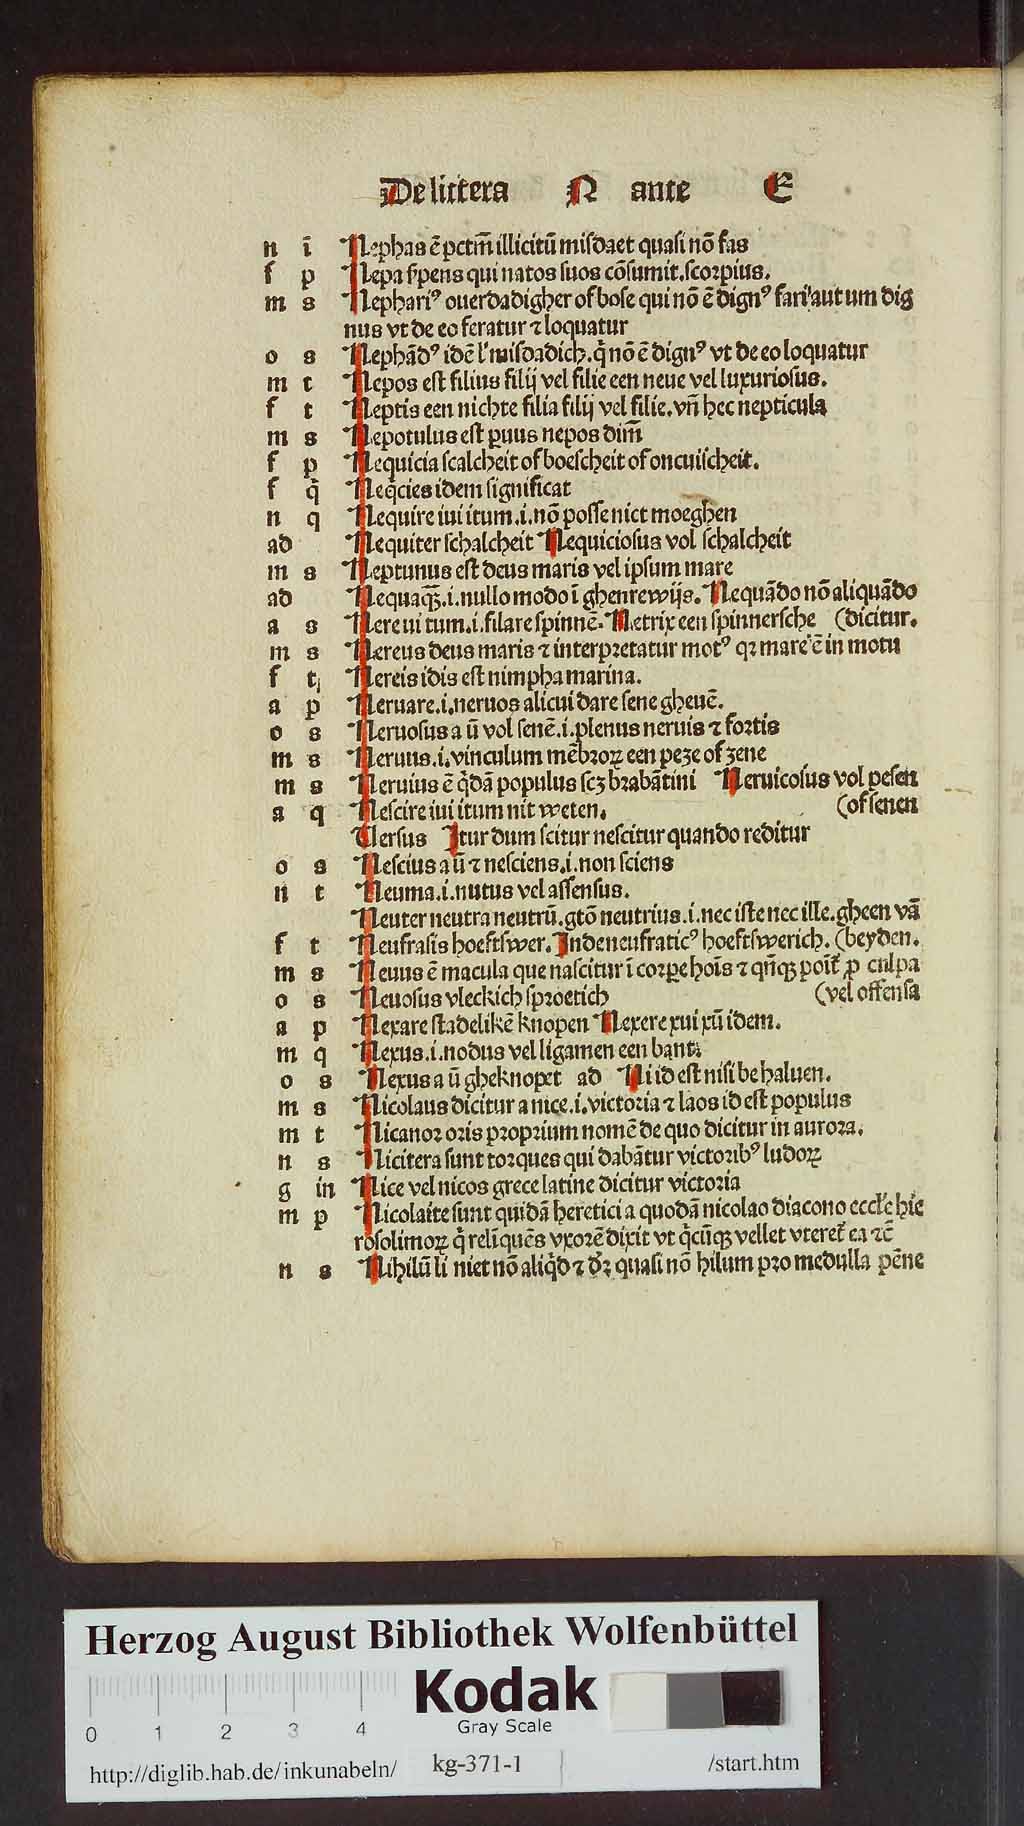 De littera N ante E
n ī Nephas ē pctm̄ illicitū misdaet quasi nō fas
f p Nepa s̄pens qui natos suos cōsumit.scorpius.
m s Nephariꝰ ouerdadigher of bose qui nō ē dignꝰ fari aut um dig
nus vt de eo feratur ⁊ loquatur
o s Nephādꝰ idē l' misdadich.q̄ nō ē dignꝰ vt de eo loquatur
m t Nepos est filius filij vel filie een neue vel luxuriosus.
f t Neptis een nichte filia filij vel filie.vn̄ hec nepticula
m s Nepotulus est ꝑuus nepos dim̄
f p Nequicia scalcheit of boescheit of oncuischeit.
f q̄ Neq̄cies idem significat
n q Nequire iui itum.i.nō posse nict moeghen
ad Nequiter schalcheit Nequiciosus vol schalcheit
m s Neptunus est deus maris vel ipsum mare
ad Nequaqꝫ.i.nullo modo ī ghenrewijs. Nequādo nō aliquādo
a s Nere ui tum.i.filare spinnē. Netrix een spinnersche (dicitur.
m s Nereus deus maris ⁊ interpretatur motꝰ qꝛ mare ē in motu
f t Nereis idis est nimpha marina.
a p Neruare.i.neruos alicui dare sene gheuē.
o s Neruosus a ū vol senē.i.plenus neruis ⁊ fortis
m s Neruus.i.vinculum mēbroꝝ een peze of zene
m s Neruius ē q̄dā populus scꝫ brabātini Neruicosus vol pesen
a q Nescire iui itum nit weten. (of senen
Versus Itur dum scitur nescitur quando reditur
o s Nescius a ū ⁊ nesciens.i.non sciens
n t Neuma.i.nutus vel assensus.
Neuter neutra neutrū.gtō neutrius.i.nec iste nec ille.gheen vā
f t Neufrasis hoeftswer. Inde neufraticꝰ hoeftswerich. (beyden.
m s Neuus ē macula que nascitur ī corꝑe hoīs ⁊ qn̄qꝫ poīt̄ ꝓ culpa
o s Neuosus vleckich sproetich (vel offensa
a p Nexare stadelikē knopen Nexere xui xū idem.
m q Nexus.i.nodus vel ligamen een bant
o s Nexus a ū gheknopet ad Ni id est nisi behaluen.
m s Nicolaus dicitur a nice.i.victoria ⁊ laos id est populus
m t Nicanor oris proprium nomē de quo dicitur in aurora.
n s Nicitera sunt torques qui dabātur victoribꝰ ludoꝝ
g in Nice vel nicos grece latine dicitur victoria
m p Nicolaite sunt quidā heretici a quodā nicolao diacono eccl'e hie
rosolimoꝝ q̄ relīquēs vxorē dixit vt q̄cūqꝫ vellet vteret̄ ea ⁊c̄
n s Nihilū li niet nō aliq̄d ⁊ dꝛ quasi nō hilum pro medulla pēne
Herzog August Bibliothek Wolfenbüttel
0 1 2 3 4
Kodak
Gray Scale
http://diglib.hab.de/inkunabeln/ kg-371-1 /start.htm